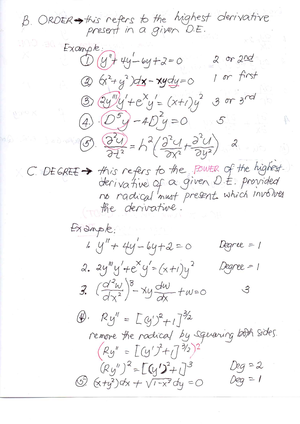 B. ORDER → this refers to the highest derivative
present in a given D.E.
Example:
① y'' + 4y' - 6y + 2 = 0 2 or 2nd
② (x² + y²)dx - xydy = 0 1 or first
③ 2y'''y' + eˣy' = (x+1)y² 3 or 3rd
④ D⁵y - 4D²y = 0 5
⑤ ∂²u/∂t² = h²(∂²u/∂x² + ∂²u/∂y²) 2
C. DEGREE → this refers to the POWER of the highest
derivative of a given D.E. provided
no radical must present which involves
the derivative.
Example:
1. y'' + 4y' - 6y + 2 = 0 Degree = 1
2. 2y'''y' + eˣy' = (x+1)y² Degree = 1
3. (d²w/dx²)³ - xy dw/dx + w = 0 3
④. Ry'' = [(y')² + 1]^3/2
remove the radical by squaring both sides.
(Ry'' = [(y')² + 1]^3/2)²
(Ry'')² = [(y')² + 1]³ Deg = 2
⑤ (x+y²)dx + √1-x² dy = 0 Deg = 1